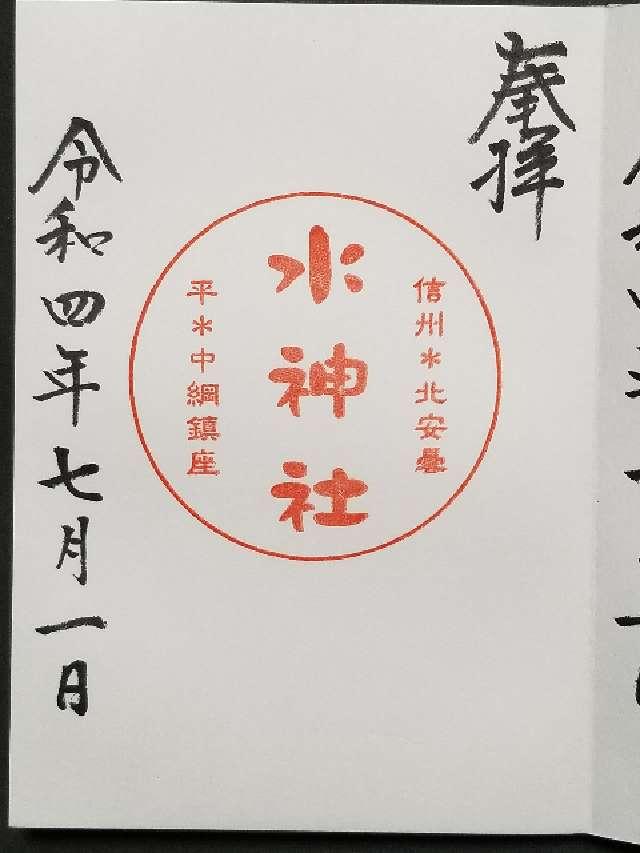 奉拝
信州＊北安曇
水神社
平＊中綱鎮座
令和四年七月一日